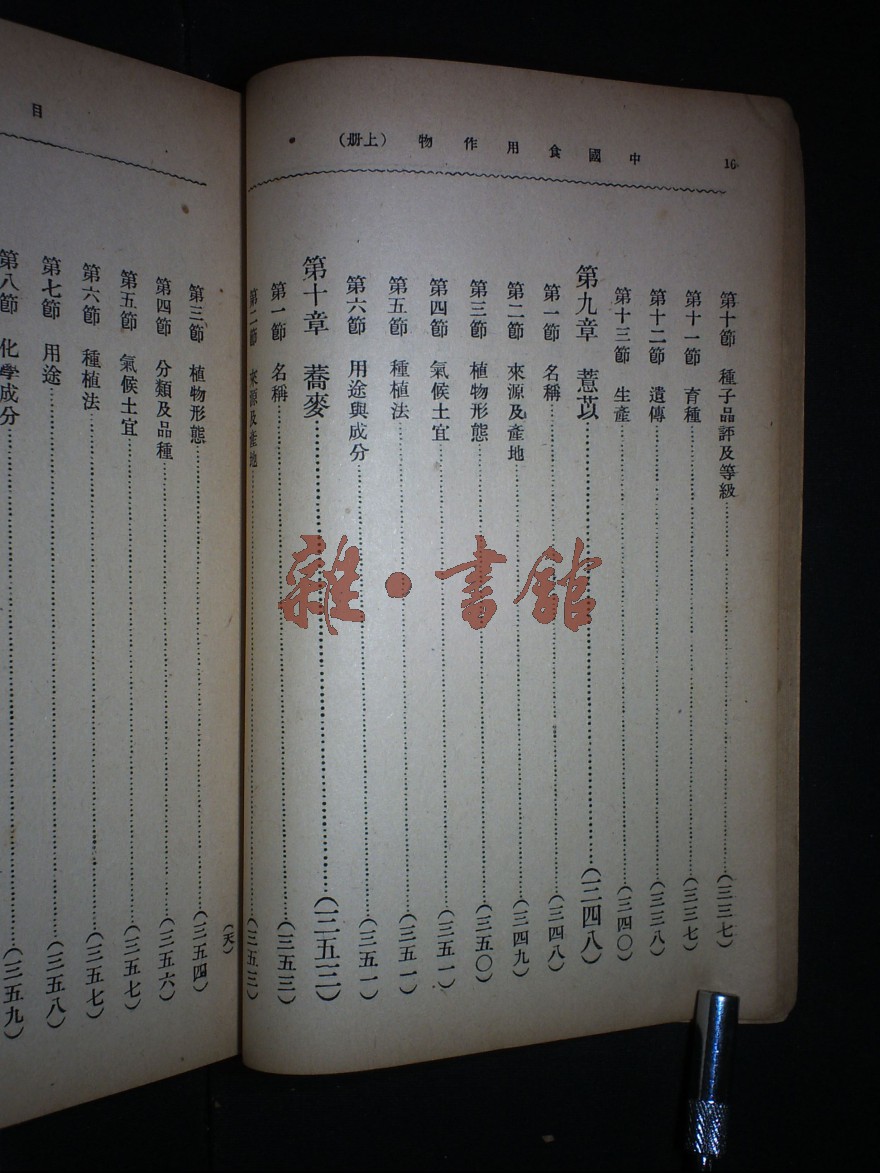 16
中國食用作物(上册)
第十節 種子品評及等級……(三三七)
第十一節 育種……(三三七)
第十二節 遺傳……(三三八)
第十三節 生產……(三四〇)
第九章 薏苡……(三四八)
第一節 名稱……(三四八)
第二節 來源及產地……(三四九)
第三節 植物形態……(三五〇)
第四節 氣候土宜……(三五一)
第五節 種植法……(三五一)
第六節 用途與成分……(三五一)
第十章 蕎麥……(三五三)
第一節 名稱……(三五三)
第二節 來源及產地……(三五三)
目
(天)
第三節 植物形態……(三五四)
第四節 分類及品種……(三五六)
第五節 氣候土宜……(三五七)
第六節 種植法……(三五七)
第七節 用途……(三五八)
第八節 化學成分……(三五九)
雜·書館